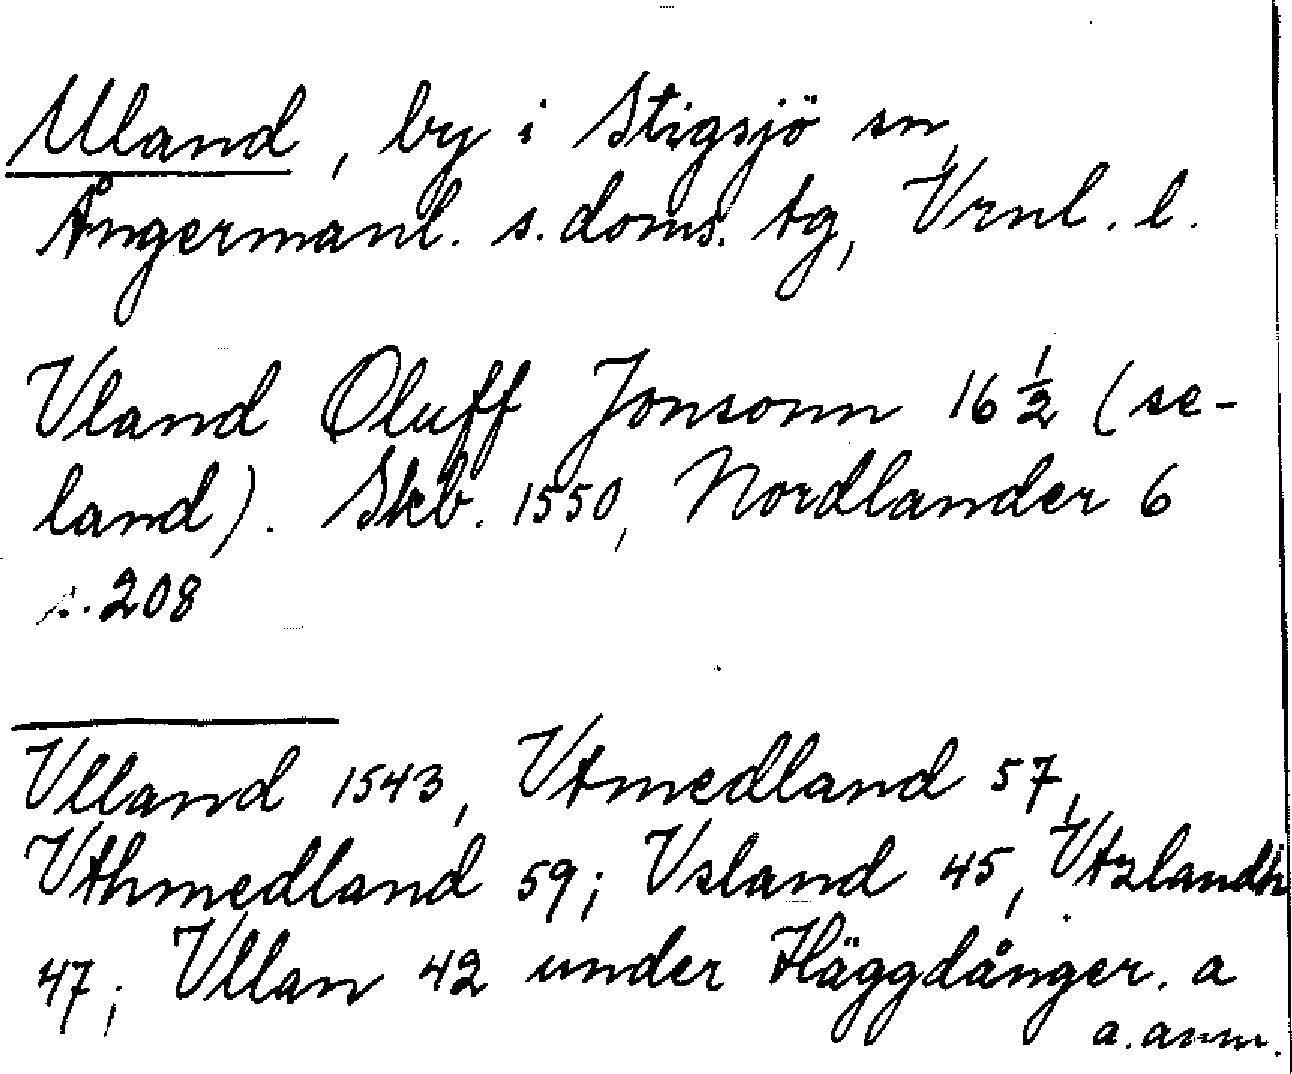 Uland, by i Stigsjö sn,
Ångermanl. s. doms. tg, Vrnl. l.
Vland Oluff Jonsonn 16 ½ (se-
land). Skb. 1550, Nordlander 6
s. 208
Vlland 1543, Vtmedland 57,
Vthmedland 59; Vsland 45, Vtzlandh
47; Vllan 42 under Häggdånger. a
a. anm.